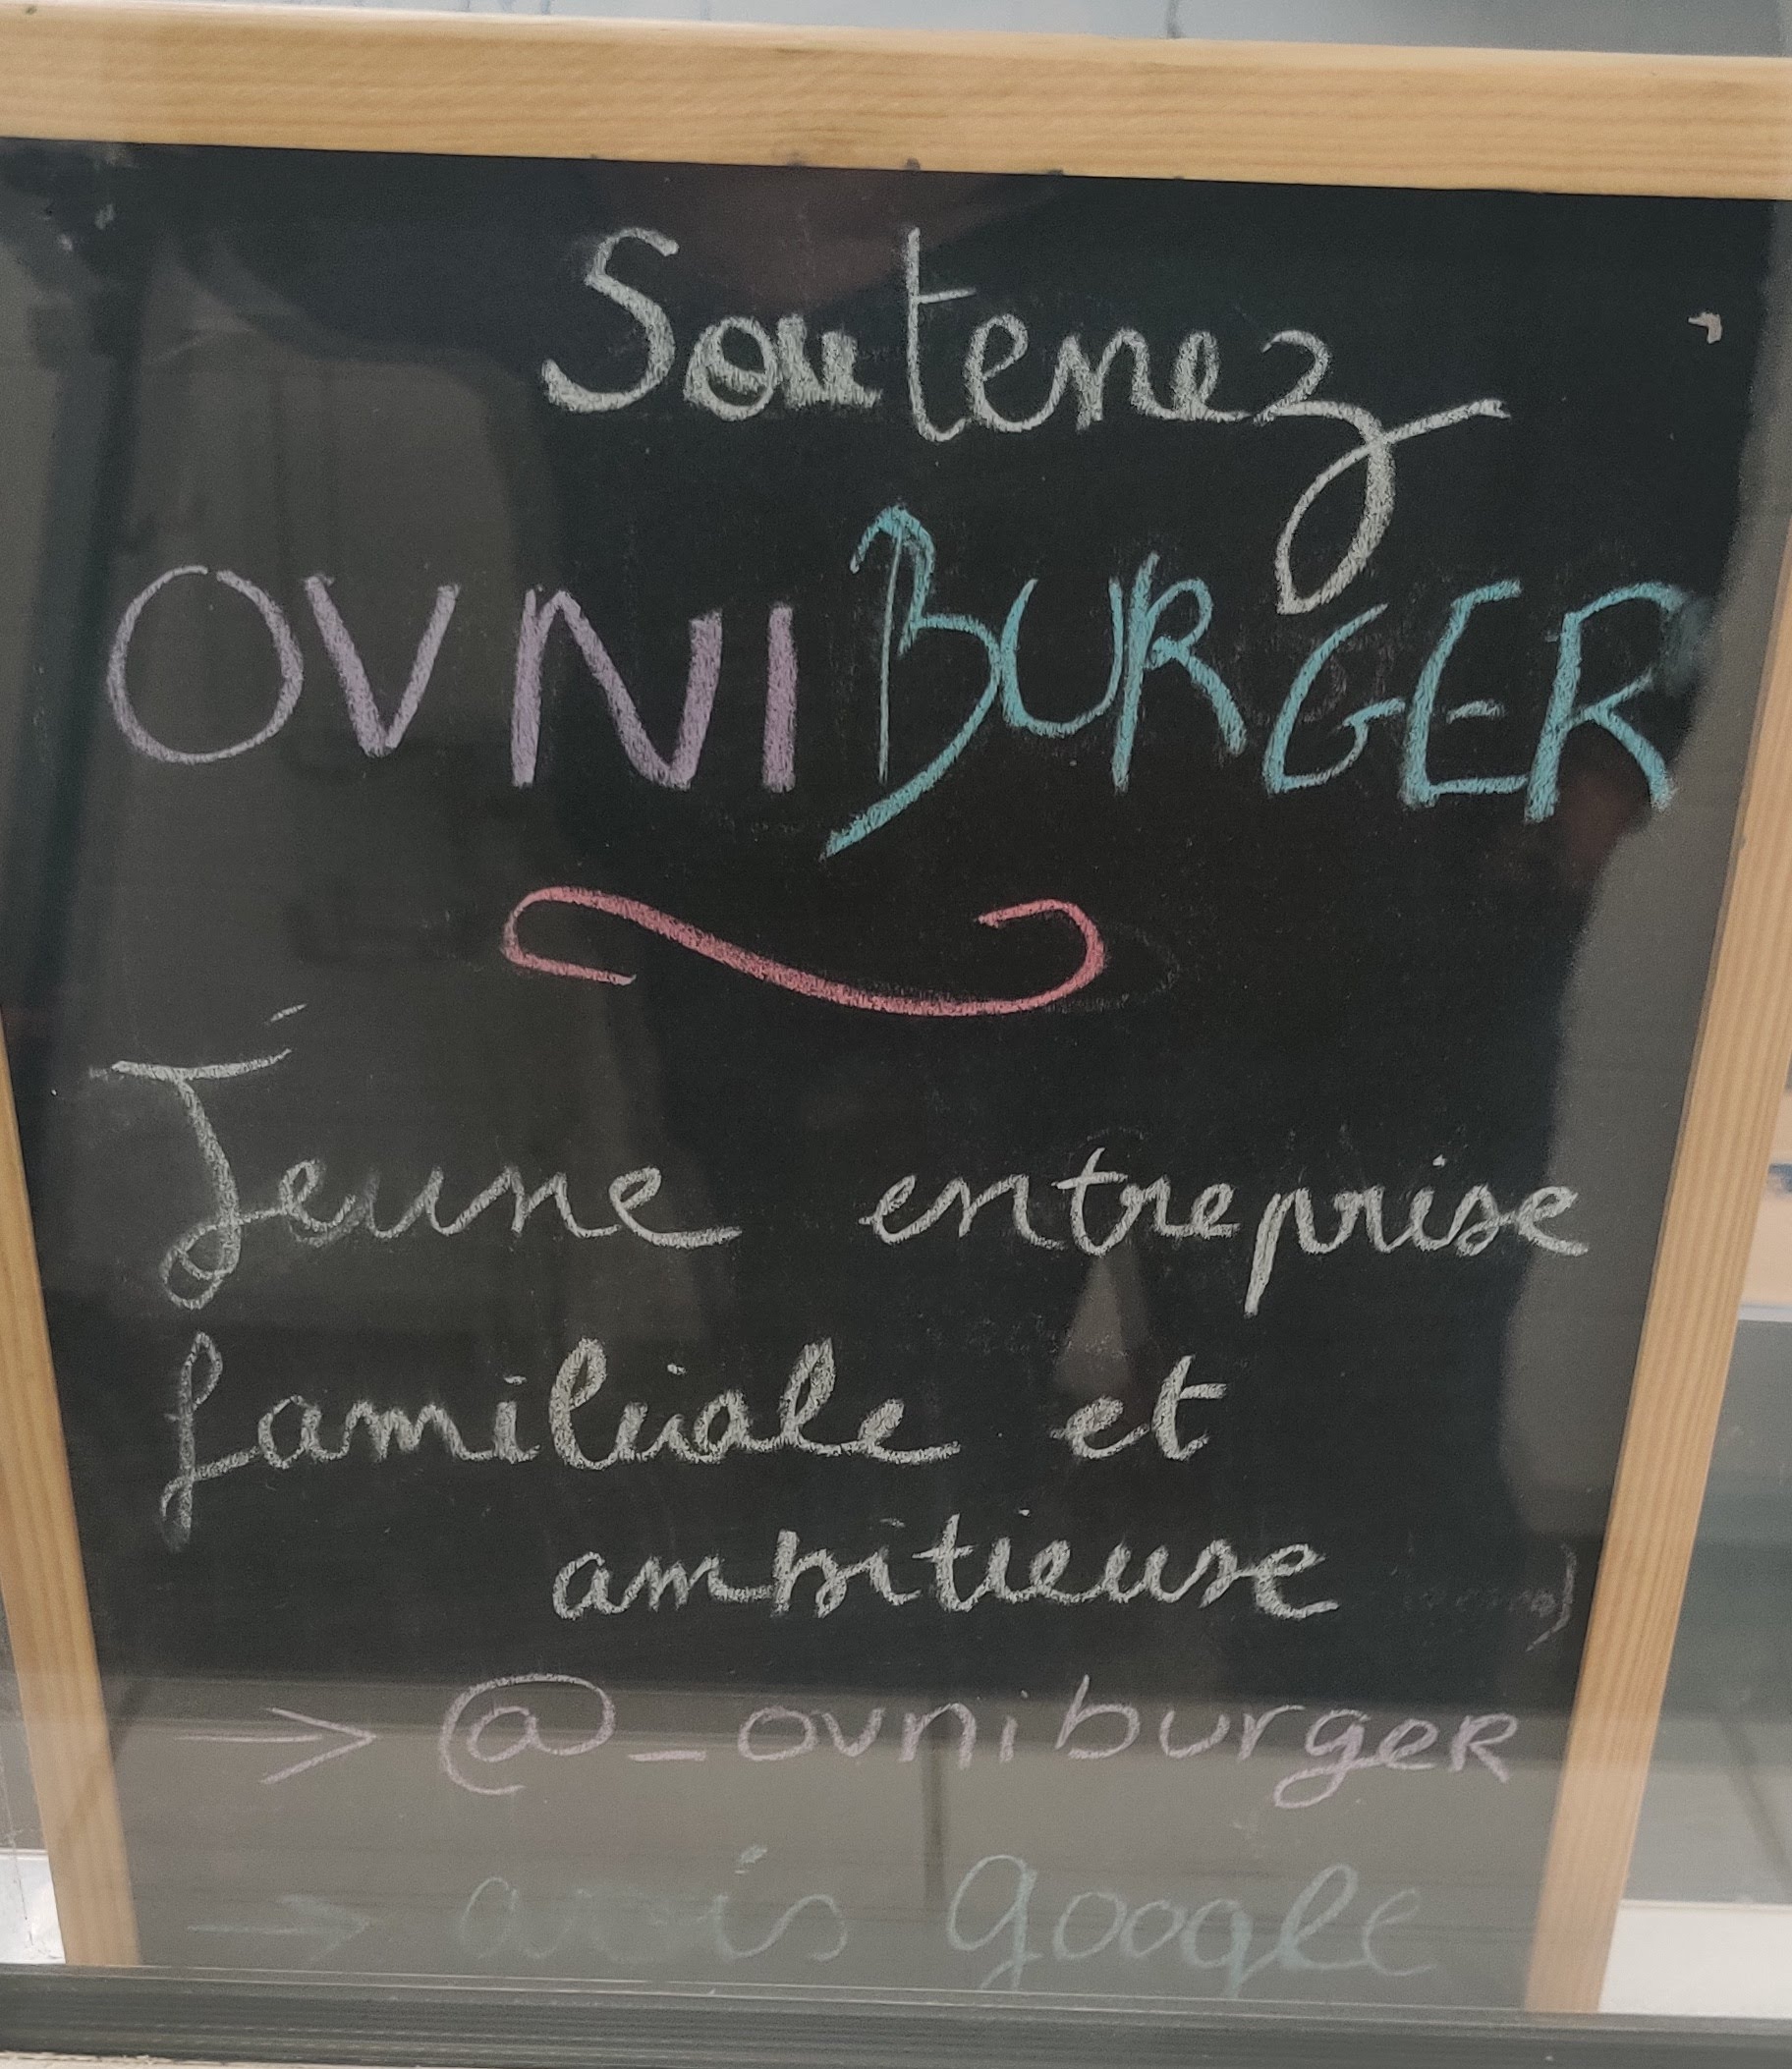 Soutenez
OVNIBURGER
Jeune entreprise
familiale et
ambitieuse
→ @_ovniburgeR
→ avis Google